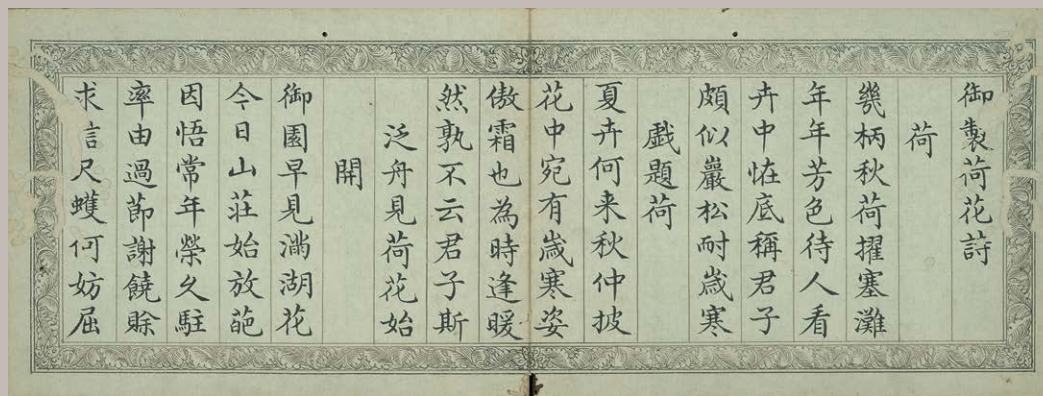 御製荷花詩
荷
幾柄秋荷擢塞灘
年年芳色待人看
卉中恠底稱君子
頗似巖松耐嵗寒
戯題荷
夏卉何来秋仲披
花中宛有嵗寒姿
傲霜也為時逢暖
然孰不云君子斯
泛舟見荷花始
開
御園早見滿湖花
今日山莊始放葩
因悟常年榮久駐
率由過莭謝饒賒
求信尺蠖何妨屈